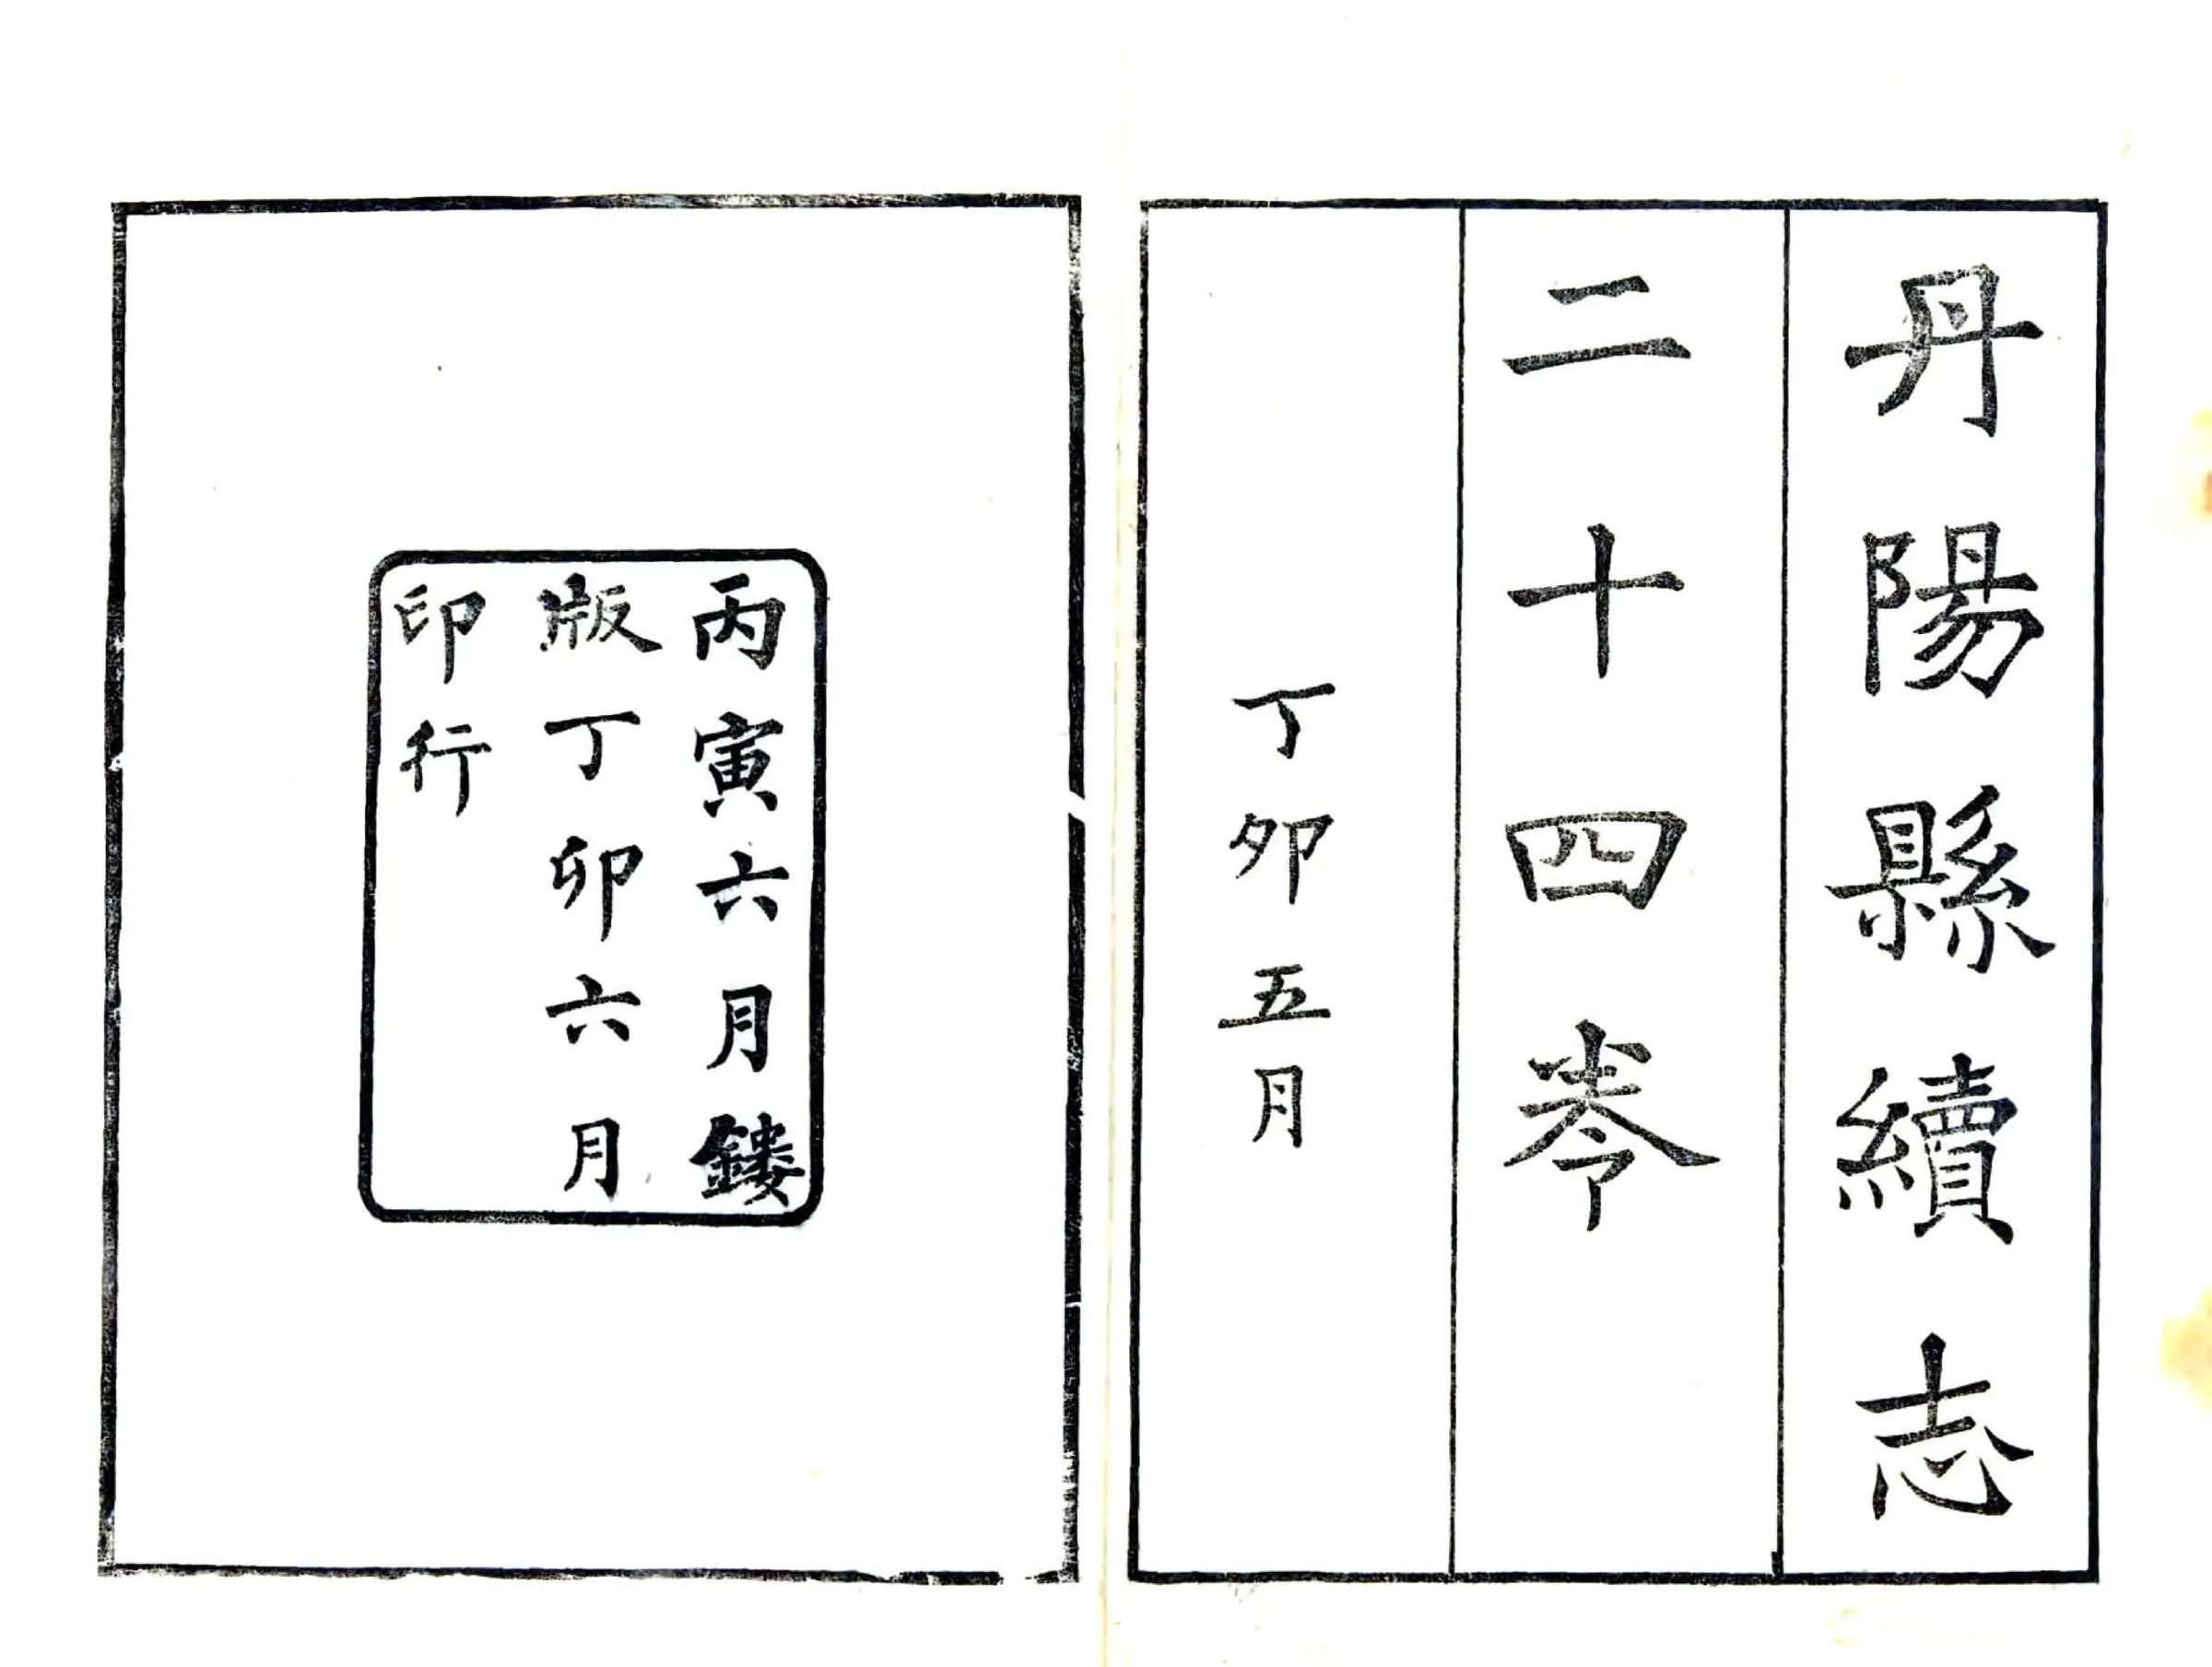 丹陽縣續志
二十四卷
丁卯五月
丙寅六月鏤
版丁卯六月
印行